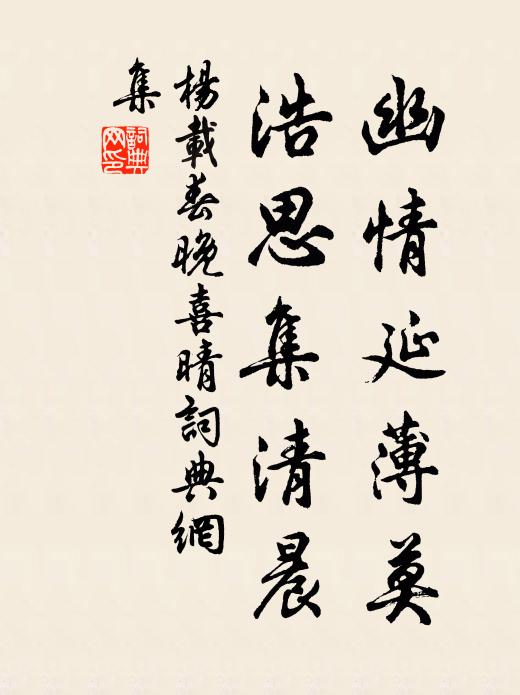 幽情延薄莫
浩思集清晨
楊載春晚喜晴詞典網
集
詞典網印